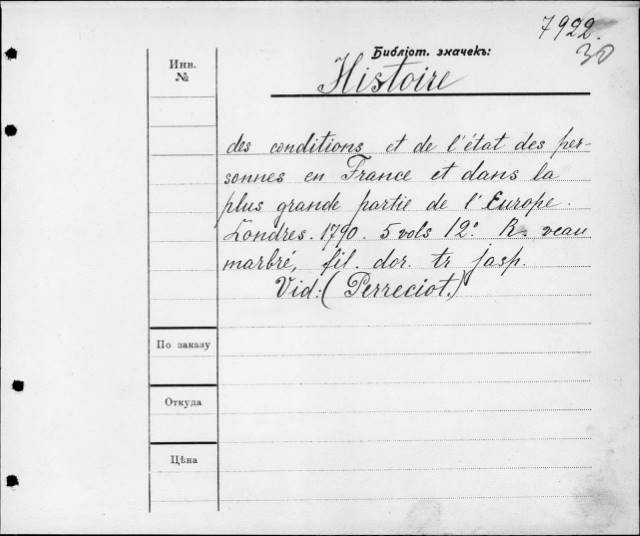 7922.
30
Библіот. значекъ:
Инв.
№
Histoire
des conditions et de l'état des per-
sonnes en France et dans la
plus grande partie de l'Europe.
Londres. 1790. 5 vols 12° R. veau
marbré, fil. dor. tr jasp.
Vid: (Perreciot.)
По заказу
Откуда
Цѣна